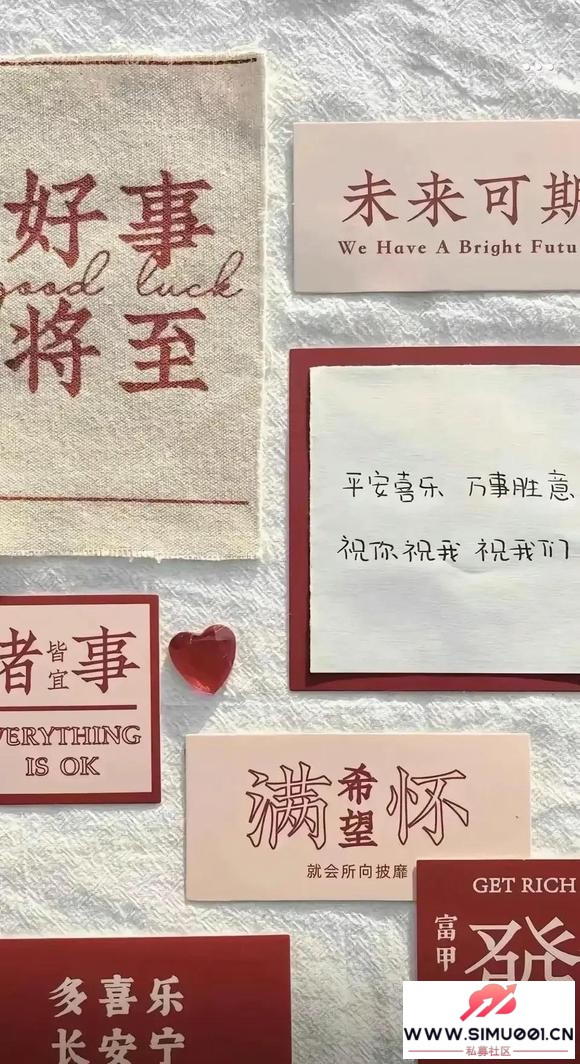 好事
good luck
将至
未来可期
We Have A Bright Futu
平安喜乐 万事胜意
祝你祝我 祝我们
诸皆宜事
EVERYTHING
IS OK
满希望怀
就会所向披靡
GET RICH
富甲
發
多喜乐
长安宁
WWW.SIMU001.CN
私募社区